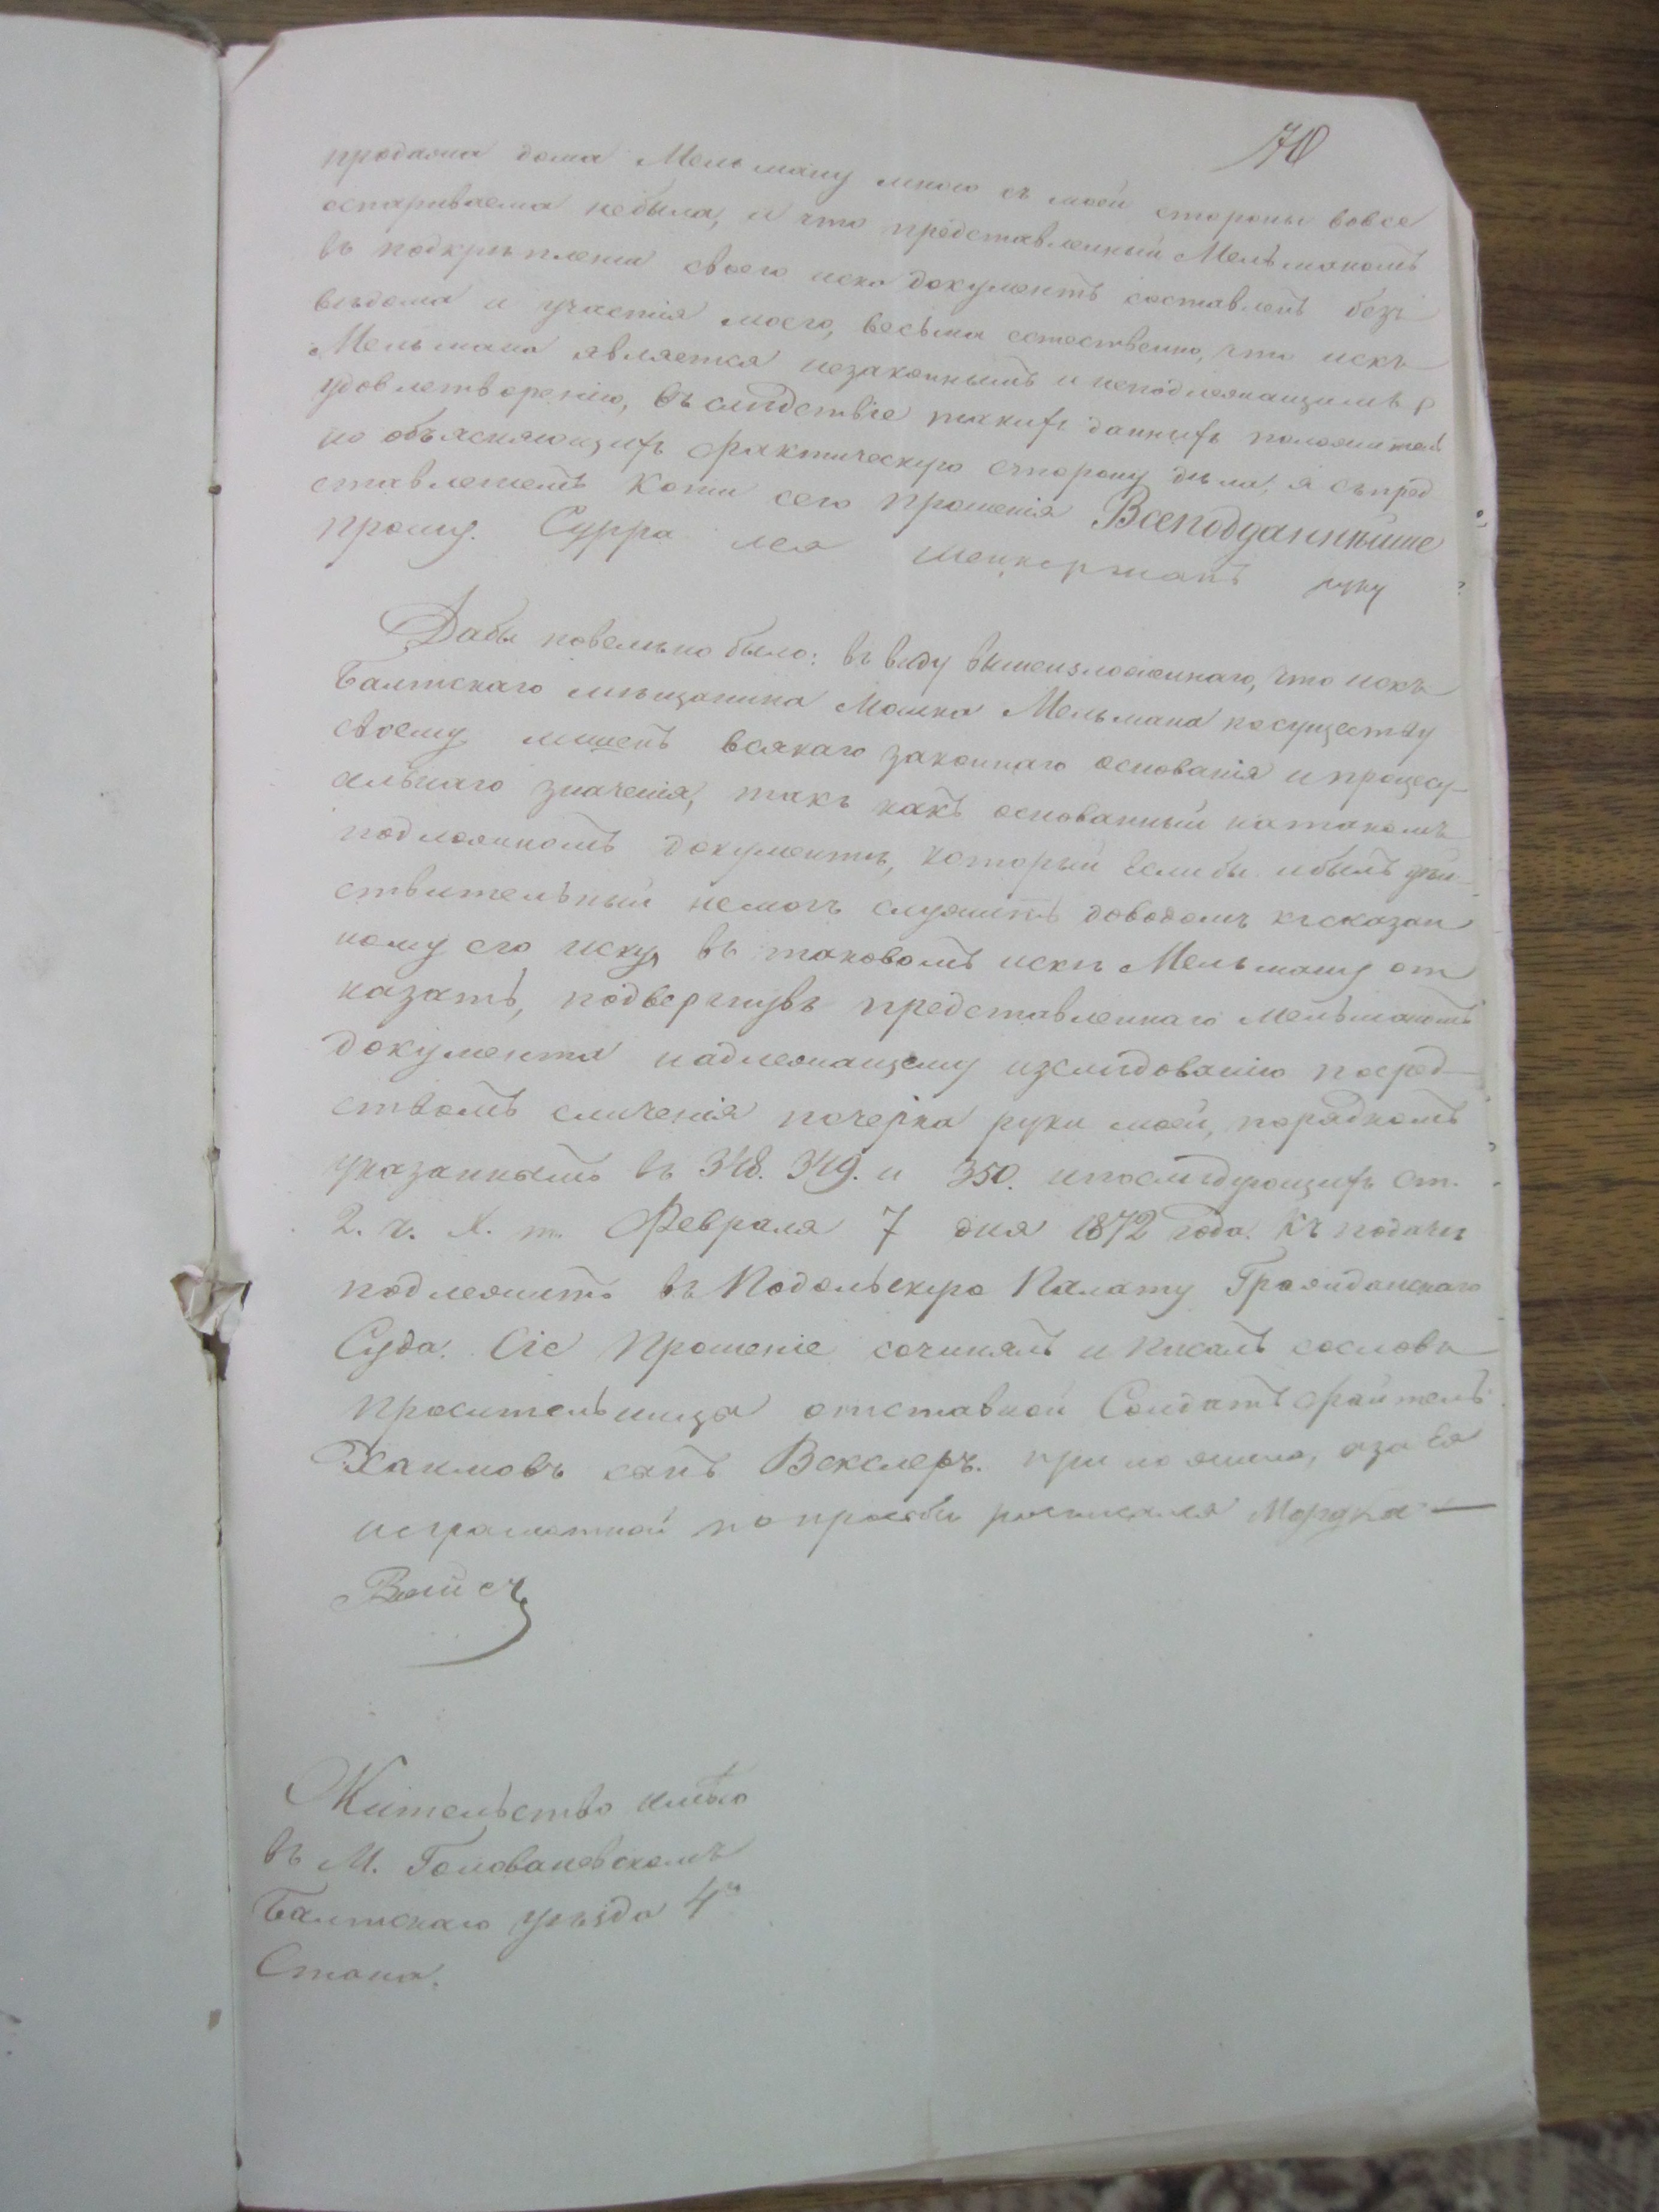 70
продажа дома Мельману мною съ моей стороны вовсе
оспариваема небыла, и что представленный Мельманомъ
въ подкрѣпленіи своего иска документъ составленъ безъ
вѣдома и участія моего, весьма естественно, что искъ
Мельмана является незаконнымъ и неподлежащимъ
удовлетворенію, въ слѣдствіе такихъ данныхъ положитель
но объясняющихъ фактическую сторону дѣла, я съ пред
ставленіемъ копіи сего прошенія Всеподданнѣйше
прошу. Сурра Лея руку
Дабы повелѣно было: въ виду вышеизложеннаго, что искъ
Балтскаго мѣщанина Мошка Мельмана посуществу
своему лишенъ всякаго законнаго основанія и процесу-
альнаго значенія, такъ какъ основанный натакомъ
подложномъ документѣ, который еслибы ибылъ дѣй-
ствительный немогъ служить доводомъ къ сказан
ному его иску, въ таковомъ искѣ Мельману от
казать, подвергнувъ представленнаго Мельманомъ
документа надлежащему изслѣдованію посред-
ствомъ сличенія почерка руки моей, порядкомъ
указаннымъ въ 348. 349. и 350. ипослѣдующихъ ст.
2. ч. X. т. Февраля 7 дня 1872 года. Къ подачѣ
подлежитъ въ Подольскую Палату Гражданскаго
Суда. Сіе Прошеніе сочинялъ и писалъ сословъ
просительницы отставной Солдатъ Файтель
Хаимовъ сынъ Векслеръ. приложила, аза Ея
неграмотной по прозьбѣ росписался Мордко
Вайсъ
Жительство имѣю
въ М. Голованевскомъ
Балтскаго уѣзда 4го
Стана.